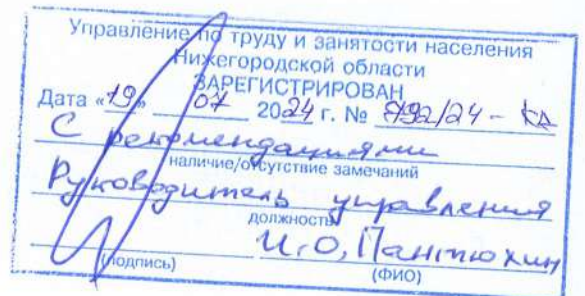 Управление по труду и занятости населения
Нижегородской области
ЗАРЕГИСТРИРОВАН
Дата «19» 07 2024 г. № /24 - КД
С рекомендациями
наличие/отсутствие замечаний
Руководитель управления
должность
И.О. Пантюхин
(подпись) (ФИО)